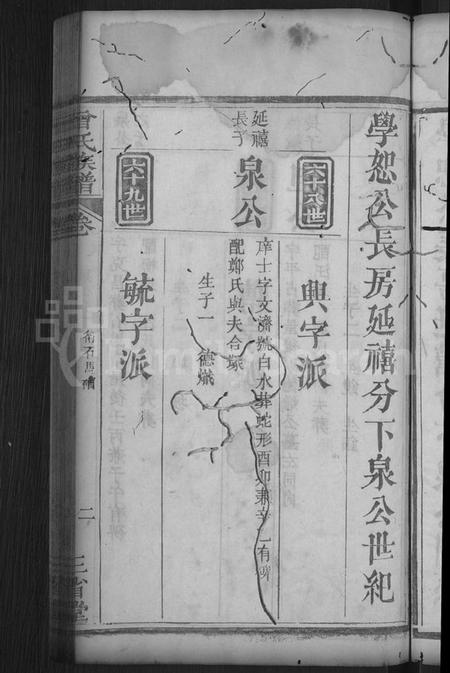 學恕公長房延禧分下泉公世紀
六十八世
興字派
延禧長子
泉公
庠士字文濟號白水葬蛇形酉卯兼辛乙有碑
配鄭氏與夫合塚
生子一
德熾
六十九世
毓字派
曾氏族譜
卷
二
三省堂